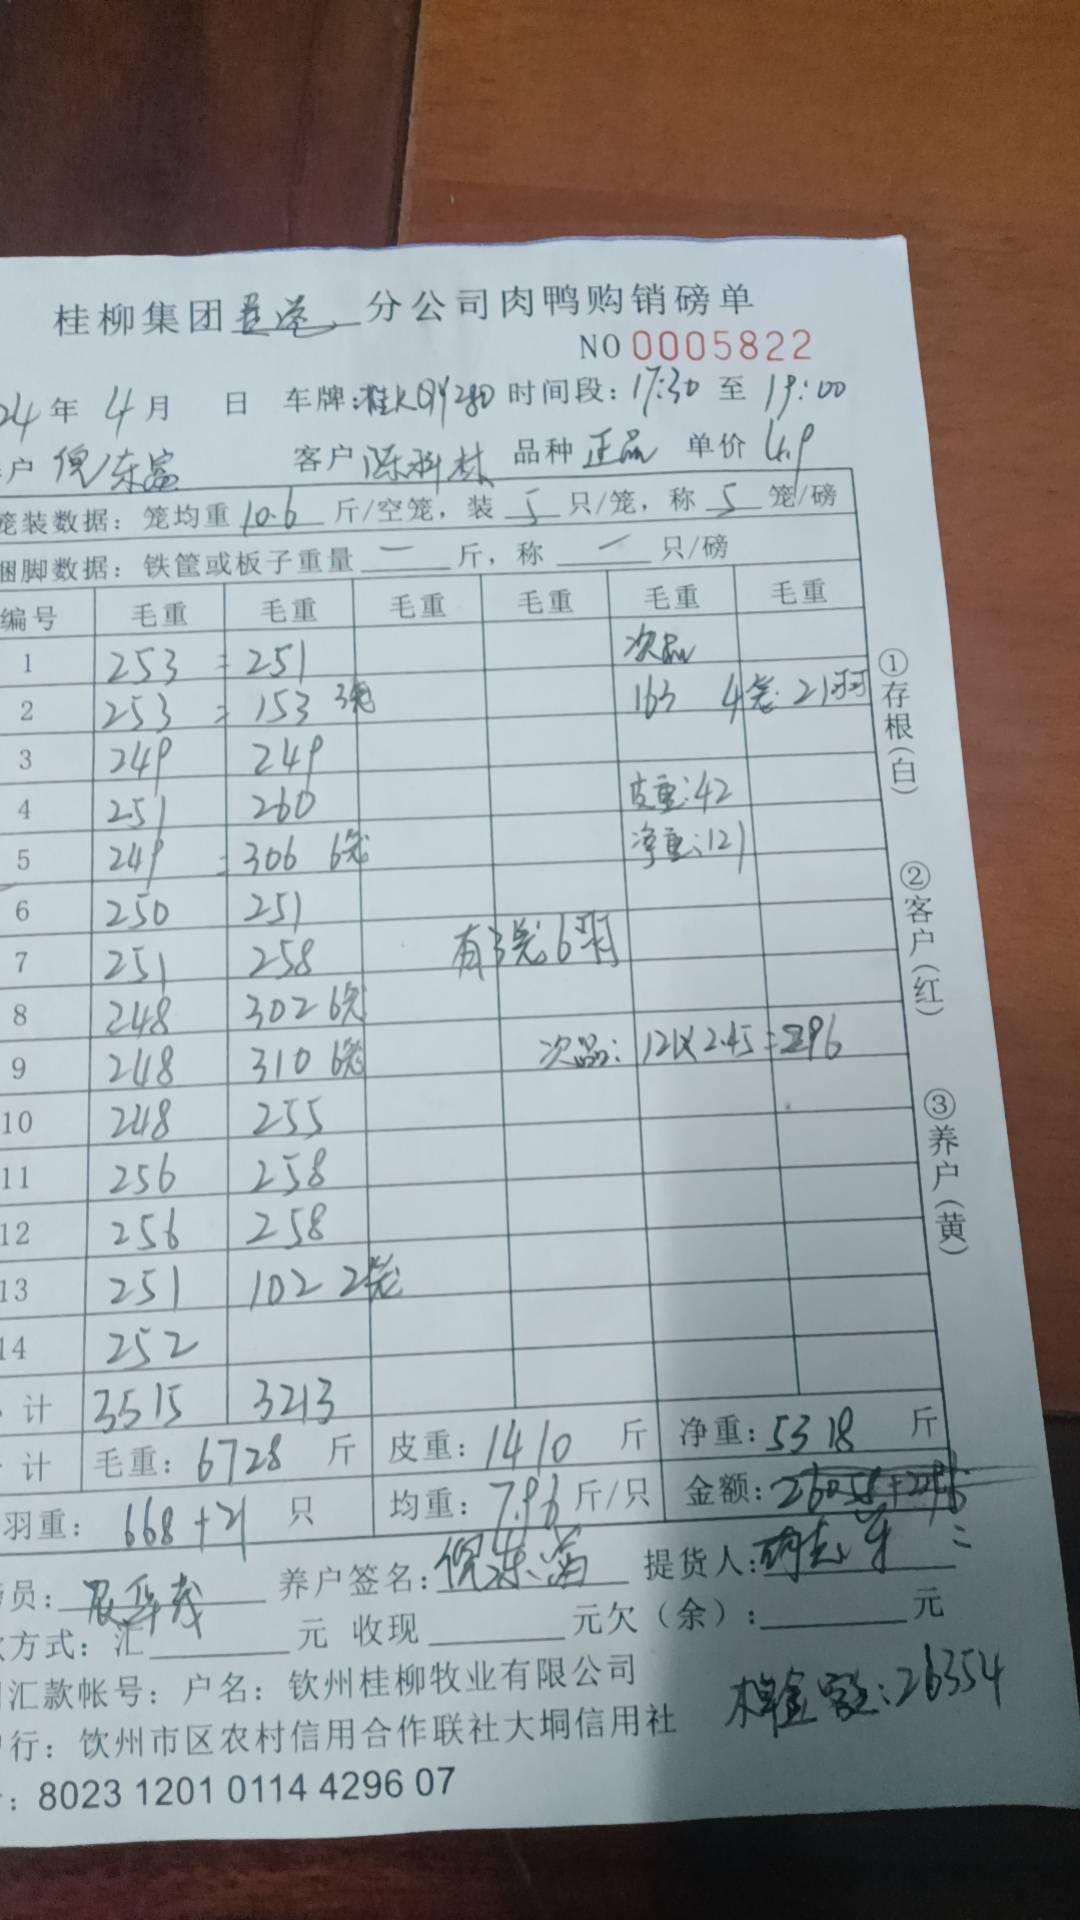 桂柳集团 分公司肉鸭购销磅单
NO 0005822
24年 4月 日 车牌:桂KQY280 时间段:17:30 至 19:00
户 倪东富 客户 陈科林 品种 正品 单价 4.9
笼装数据:笼均重 10.6 斤/空笼,装 5 只/笼,称 5 笼/磅
捆脚数据:铁筐或板子重量 一 斤,称 一 只/磅
编号 毛重 毛重 毛重 毛重 毛重 毛重
1 253 = 251 次品
2 253 = 153 3笼 163 4笼 21羽
3 249 249
4 251 260 皮重:42
5 249 = 306 6笼 净重:121
6 250 251
7 251 258 有3笼6羽
8 248 302 6笼
9 248 310 6笼 次品:121×2.45=296
10 248 255
11 256 258
12 256 258
13 251 102 2笼
14 252
计 3515 3213
计 毛重:6728 斤 皮重:1410 斤 净重:5318 斤
羽重:668+21 只 均重:7.96 斤/只 金额:26058+296
员: 养户签名:倪东富 提货人:
方式:汇 元 收现 元欠(余): 元
汇款帐号:户名:钦州桂柳牧业有限公司
行:钦州市区农村信用合作联社大垌信用社
:8023 1201 0114 4296 07
:26354
①存根(白)
②客户(红)
③养户(黄)